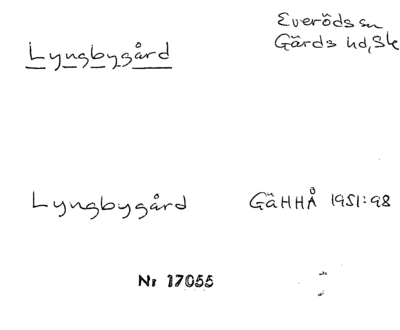 Lyngbygård
Everöds sn
Gärds hd, Sk
Lyngbygård
GäHHÅ 1951:98
Nr 17055